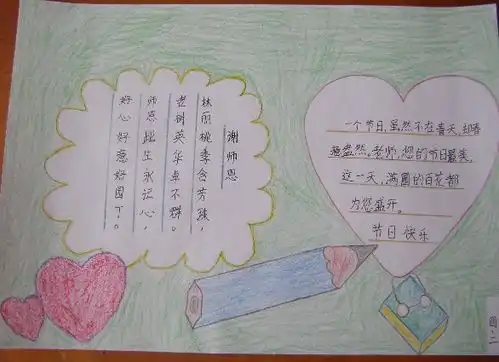 谢师恩
林丽桃季含芳蕊，
老树英华卓不群。
师恩此生永记心，
好心好意好园丁。
一个节日，虽然不在春天，却春
意盎然。老师，您的节日最美，
这一天，满园的百花都
为您盛开。
节日快乐